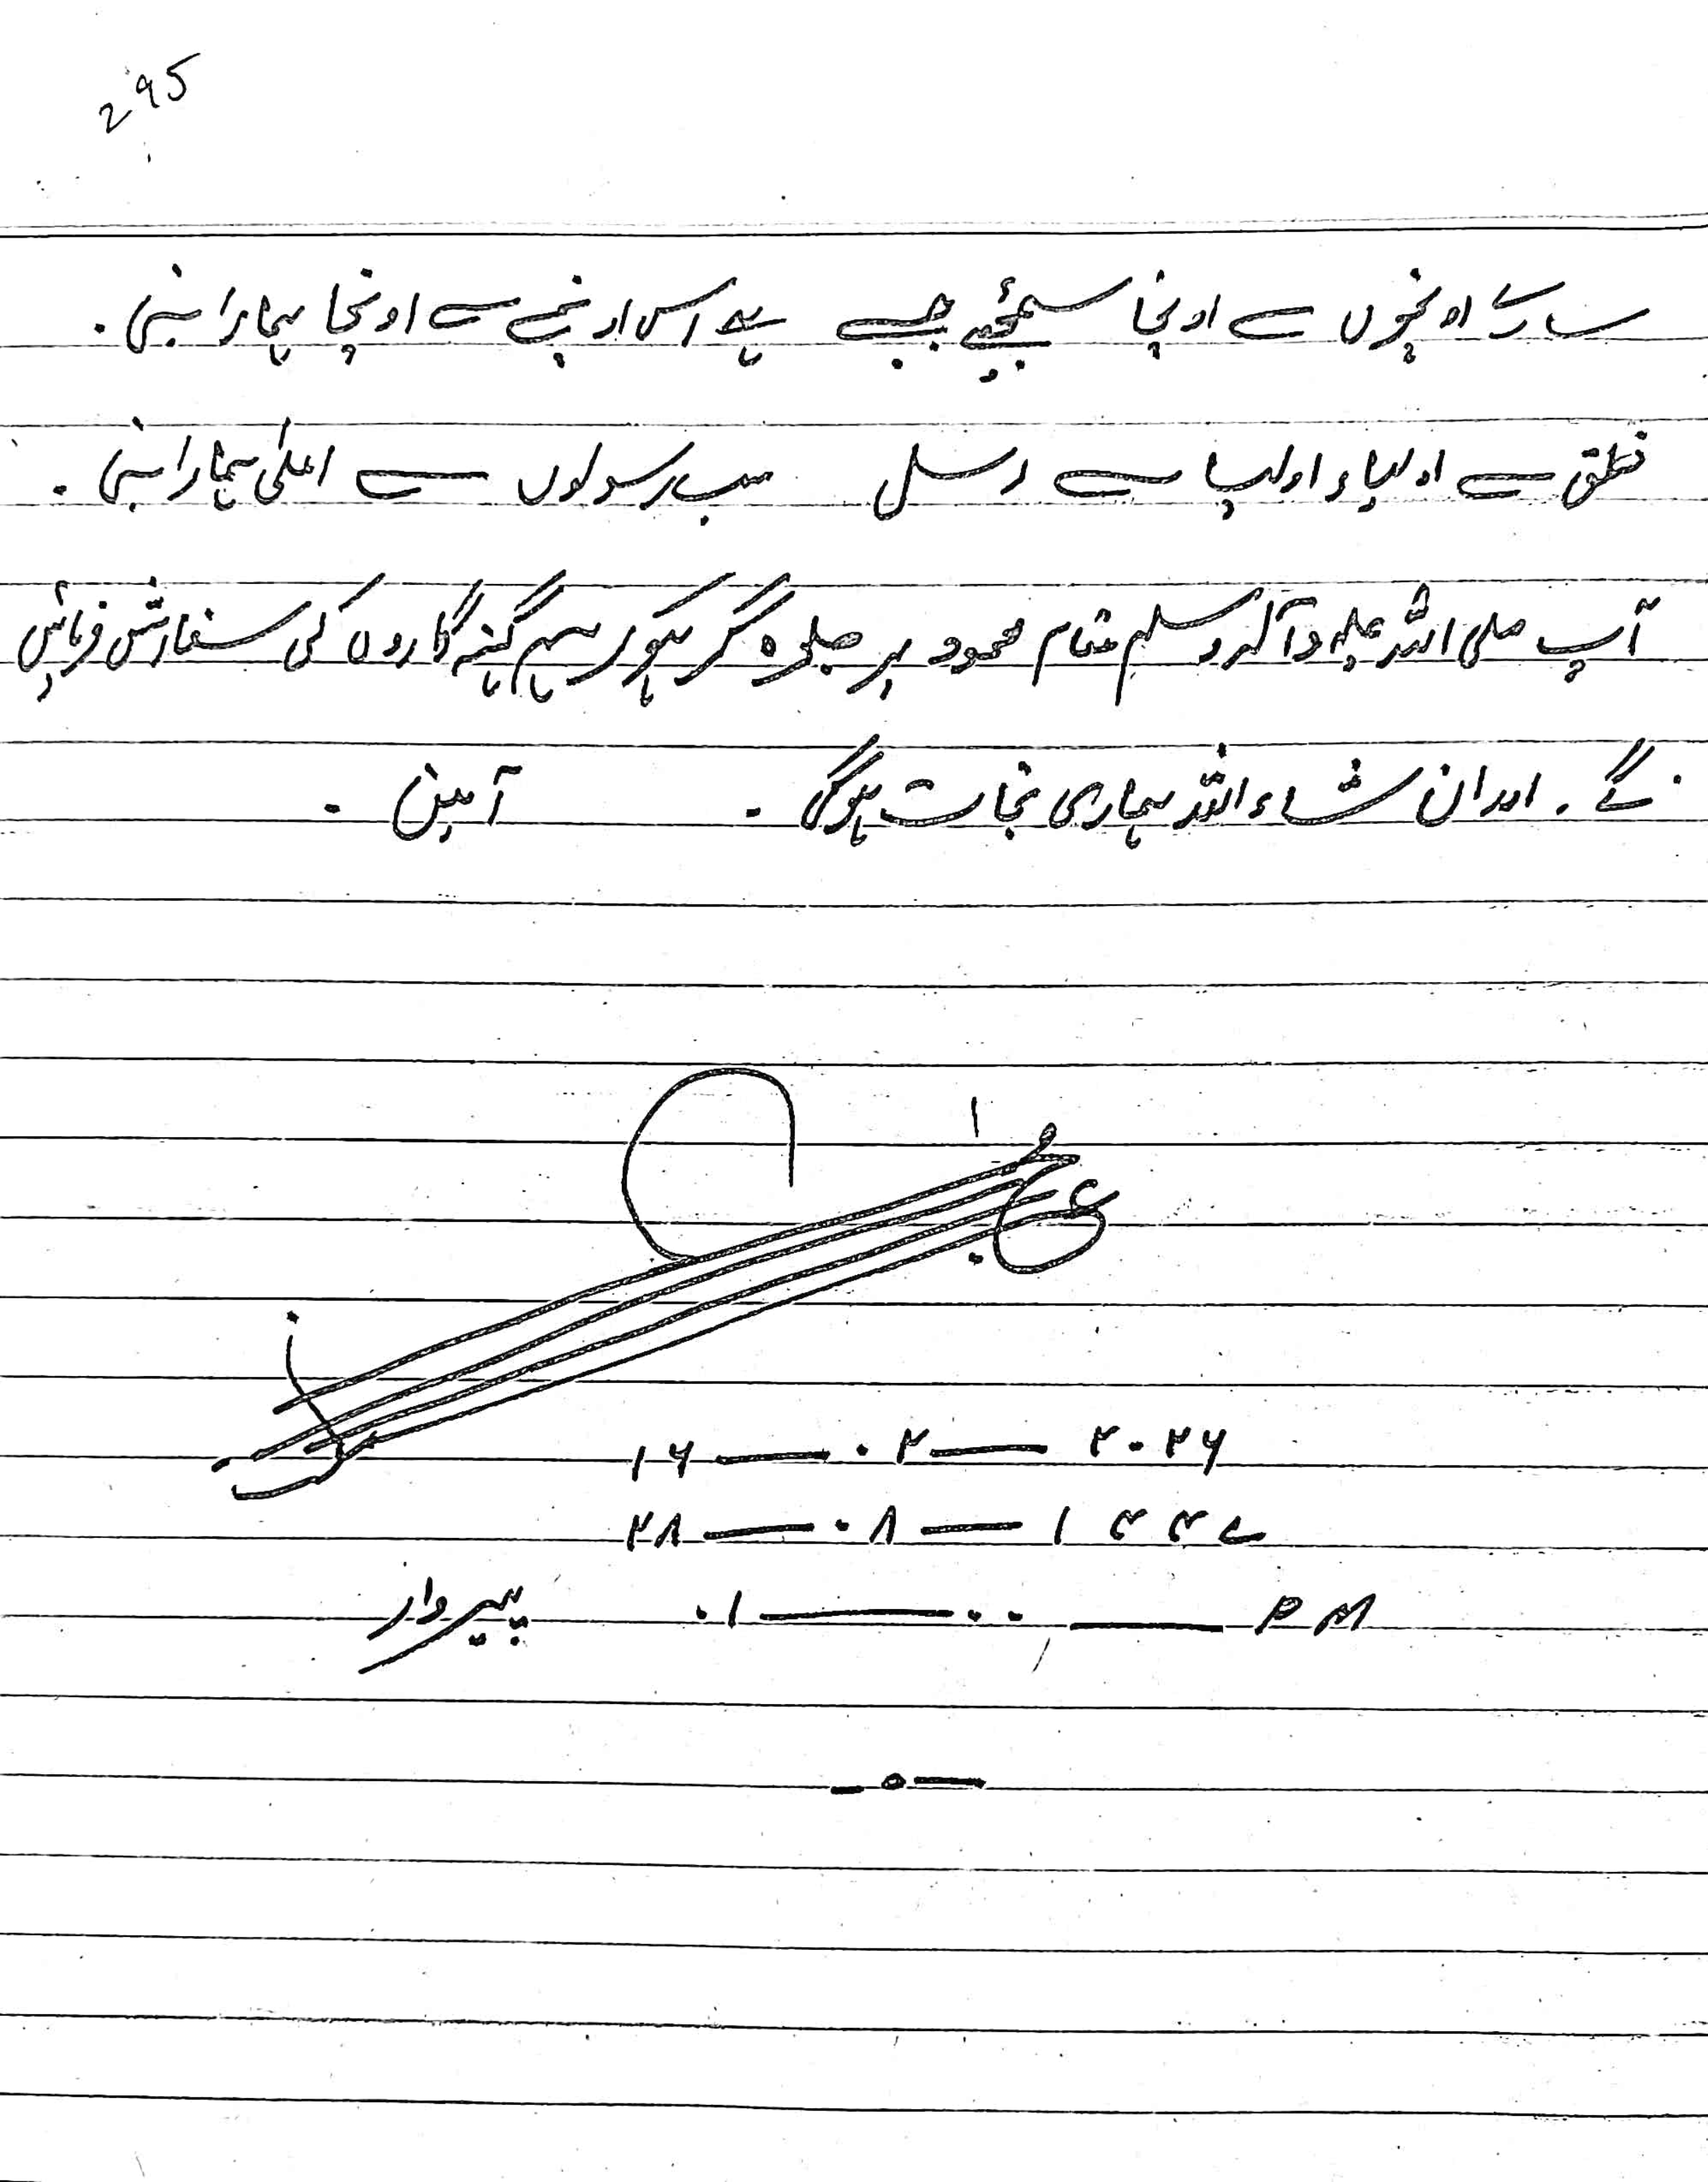 295
سارے اونچوں سے اونچا سمجھئیے جسے ہے اس اونچے سے اونچا ہمارا نبی .
خلق سے اولیاء اولیا سے رسل سب رسولوں سے اعلیٰ ہمارا نبی .
آپ صلی اللہ علیہ وآلہ وسلم مقام محمود پر جلوہ گر ہوکر ہم گنہگاروں کی سفارش فرمائیں
گے . اور ان شاء اللہ ہماری نجات ہوگی . آمین .
۱۶ — ۰۲ — ۲۰۲۶
۲۸ — ۰۸ — ۱۴۴۷
پیروار ۰۱ — ۰۰ — PM